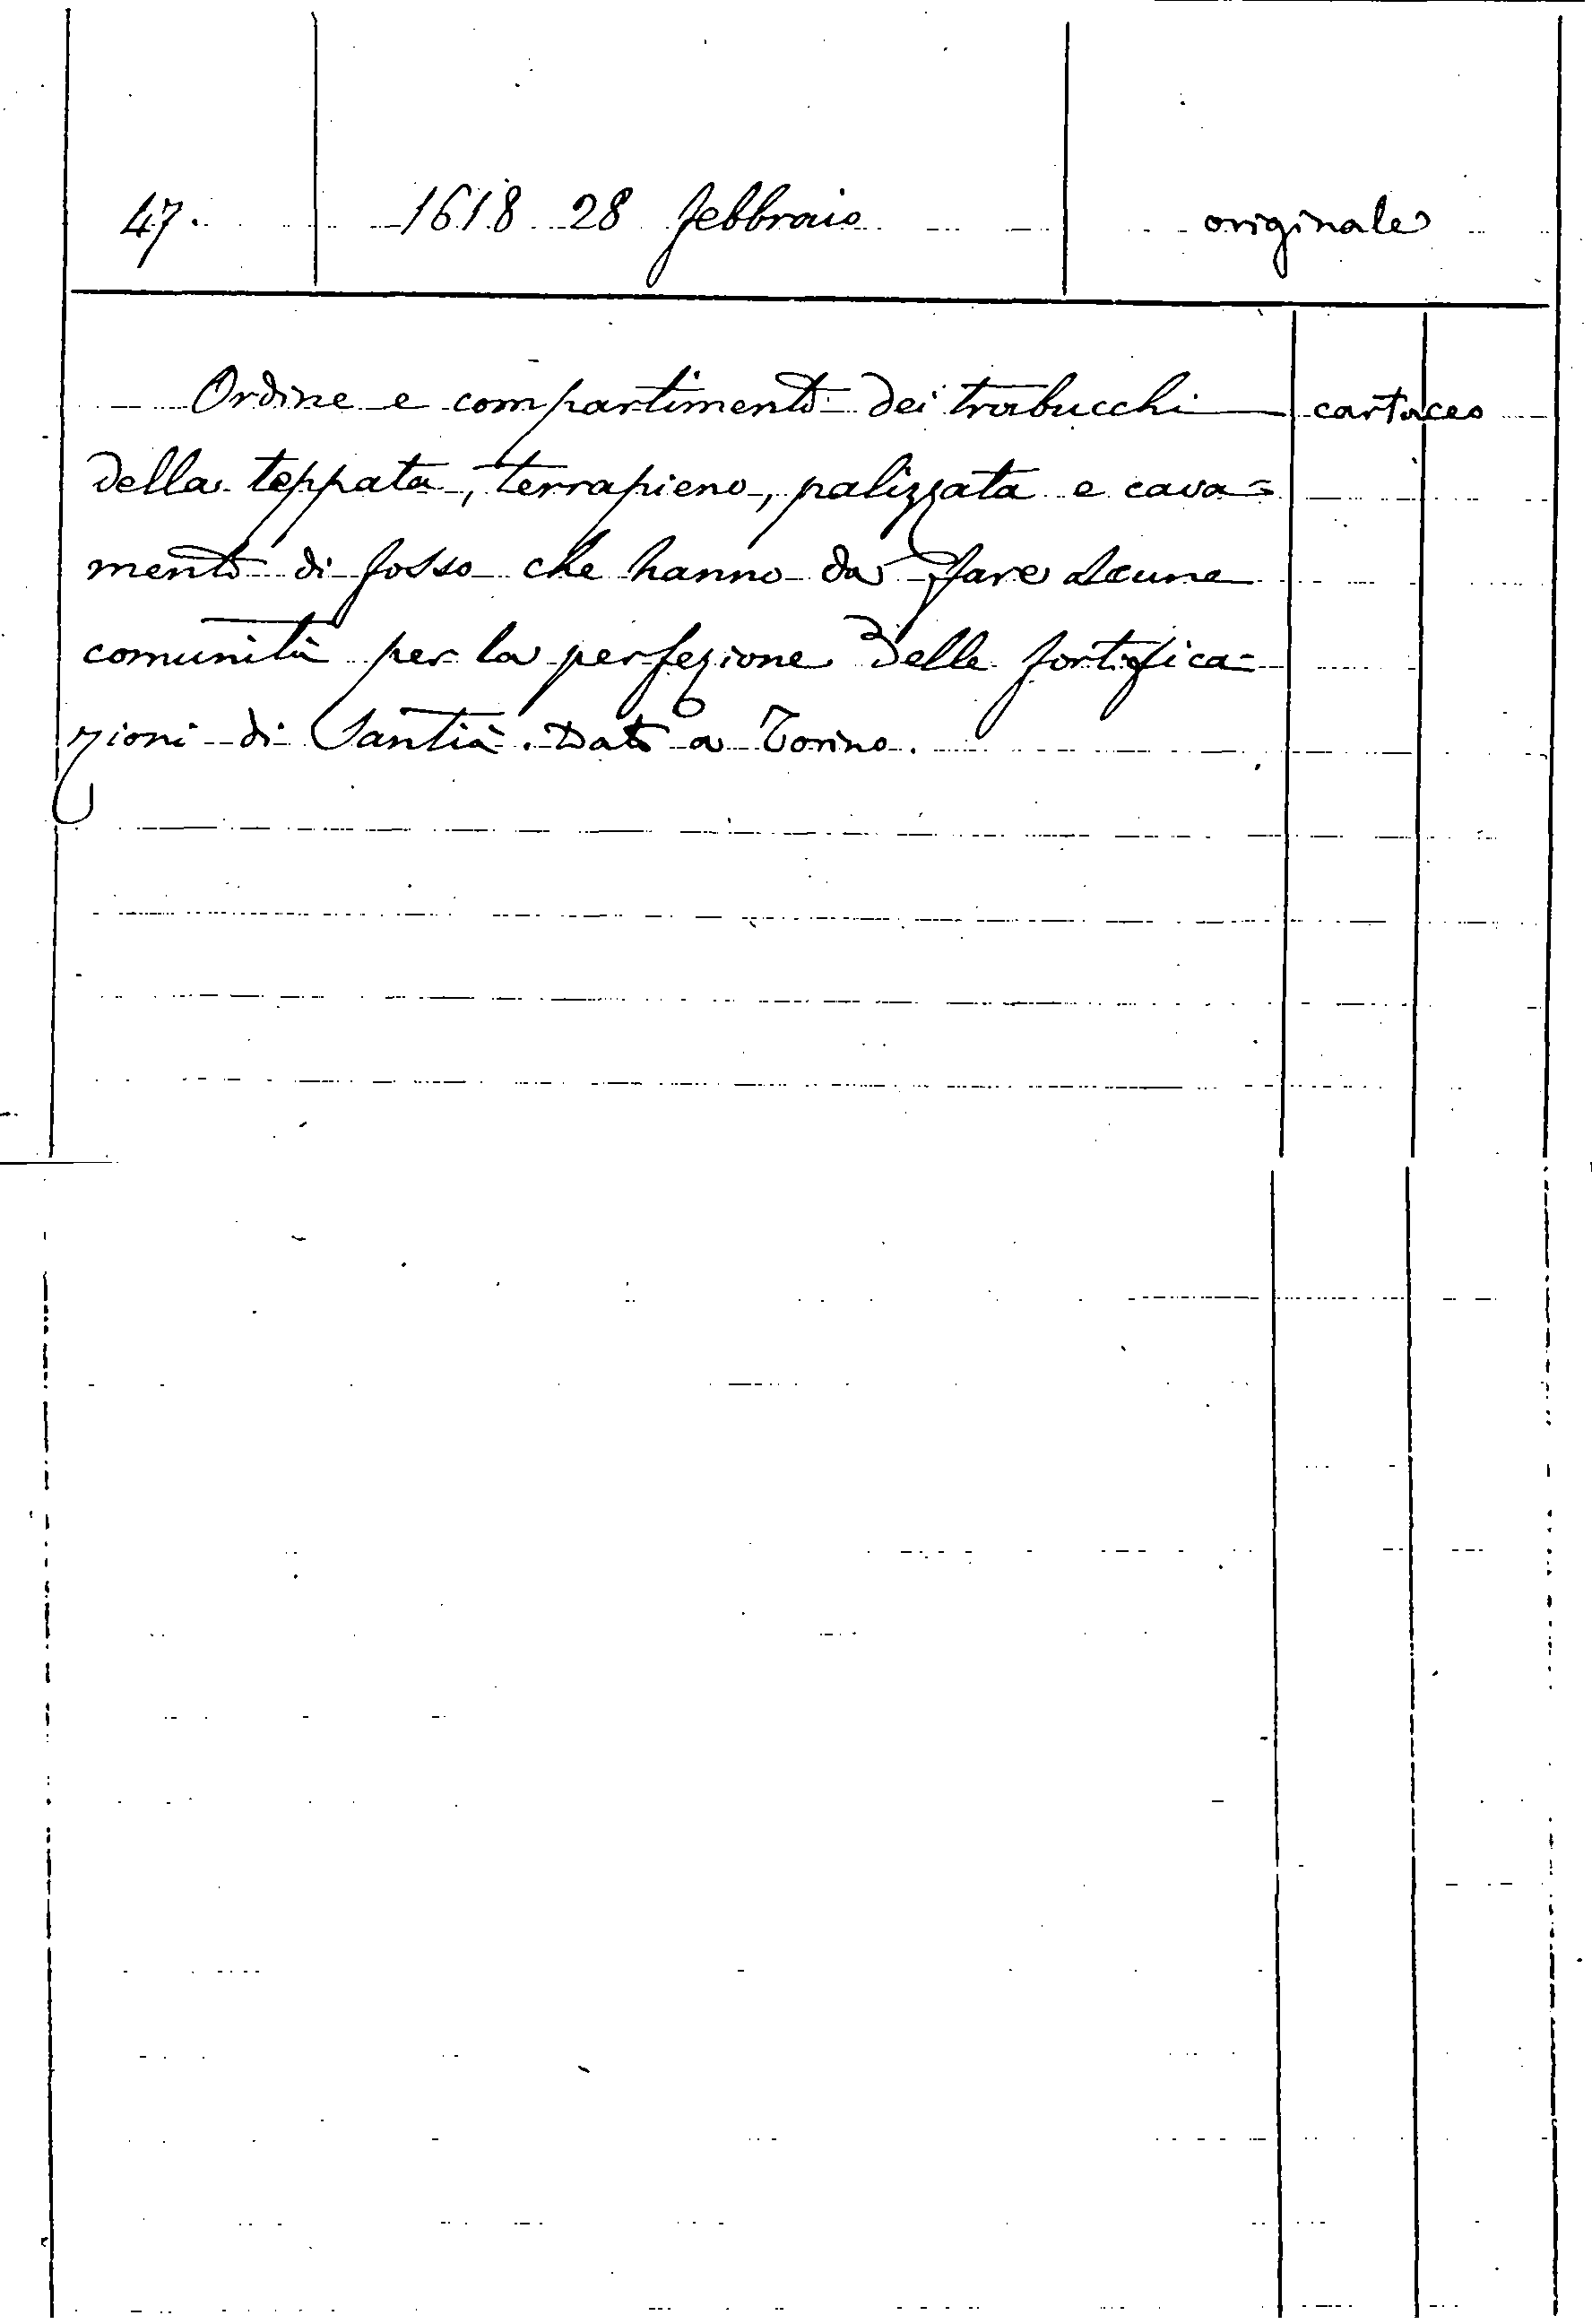 47. 1618 28 febbraio originale
Ordine e compartimento dei trabucchi cartaceo
della teppata, terrapieno, palizzata e cava=
mento di fosso che hanno da fare alcune
comunità per la perfezione delle fortifica=
zioni di Santià. Dato a Torino.